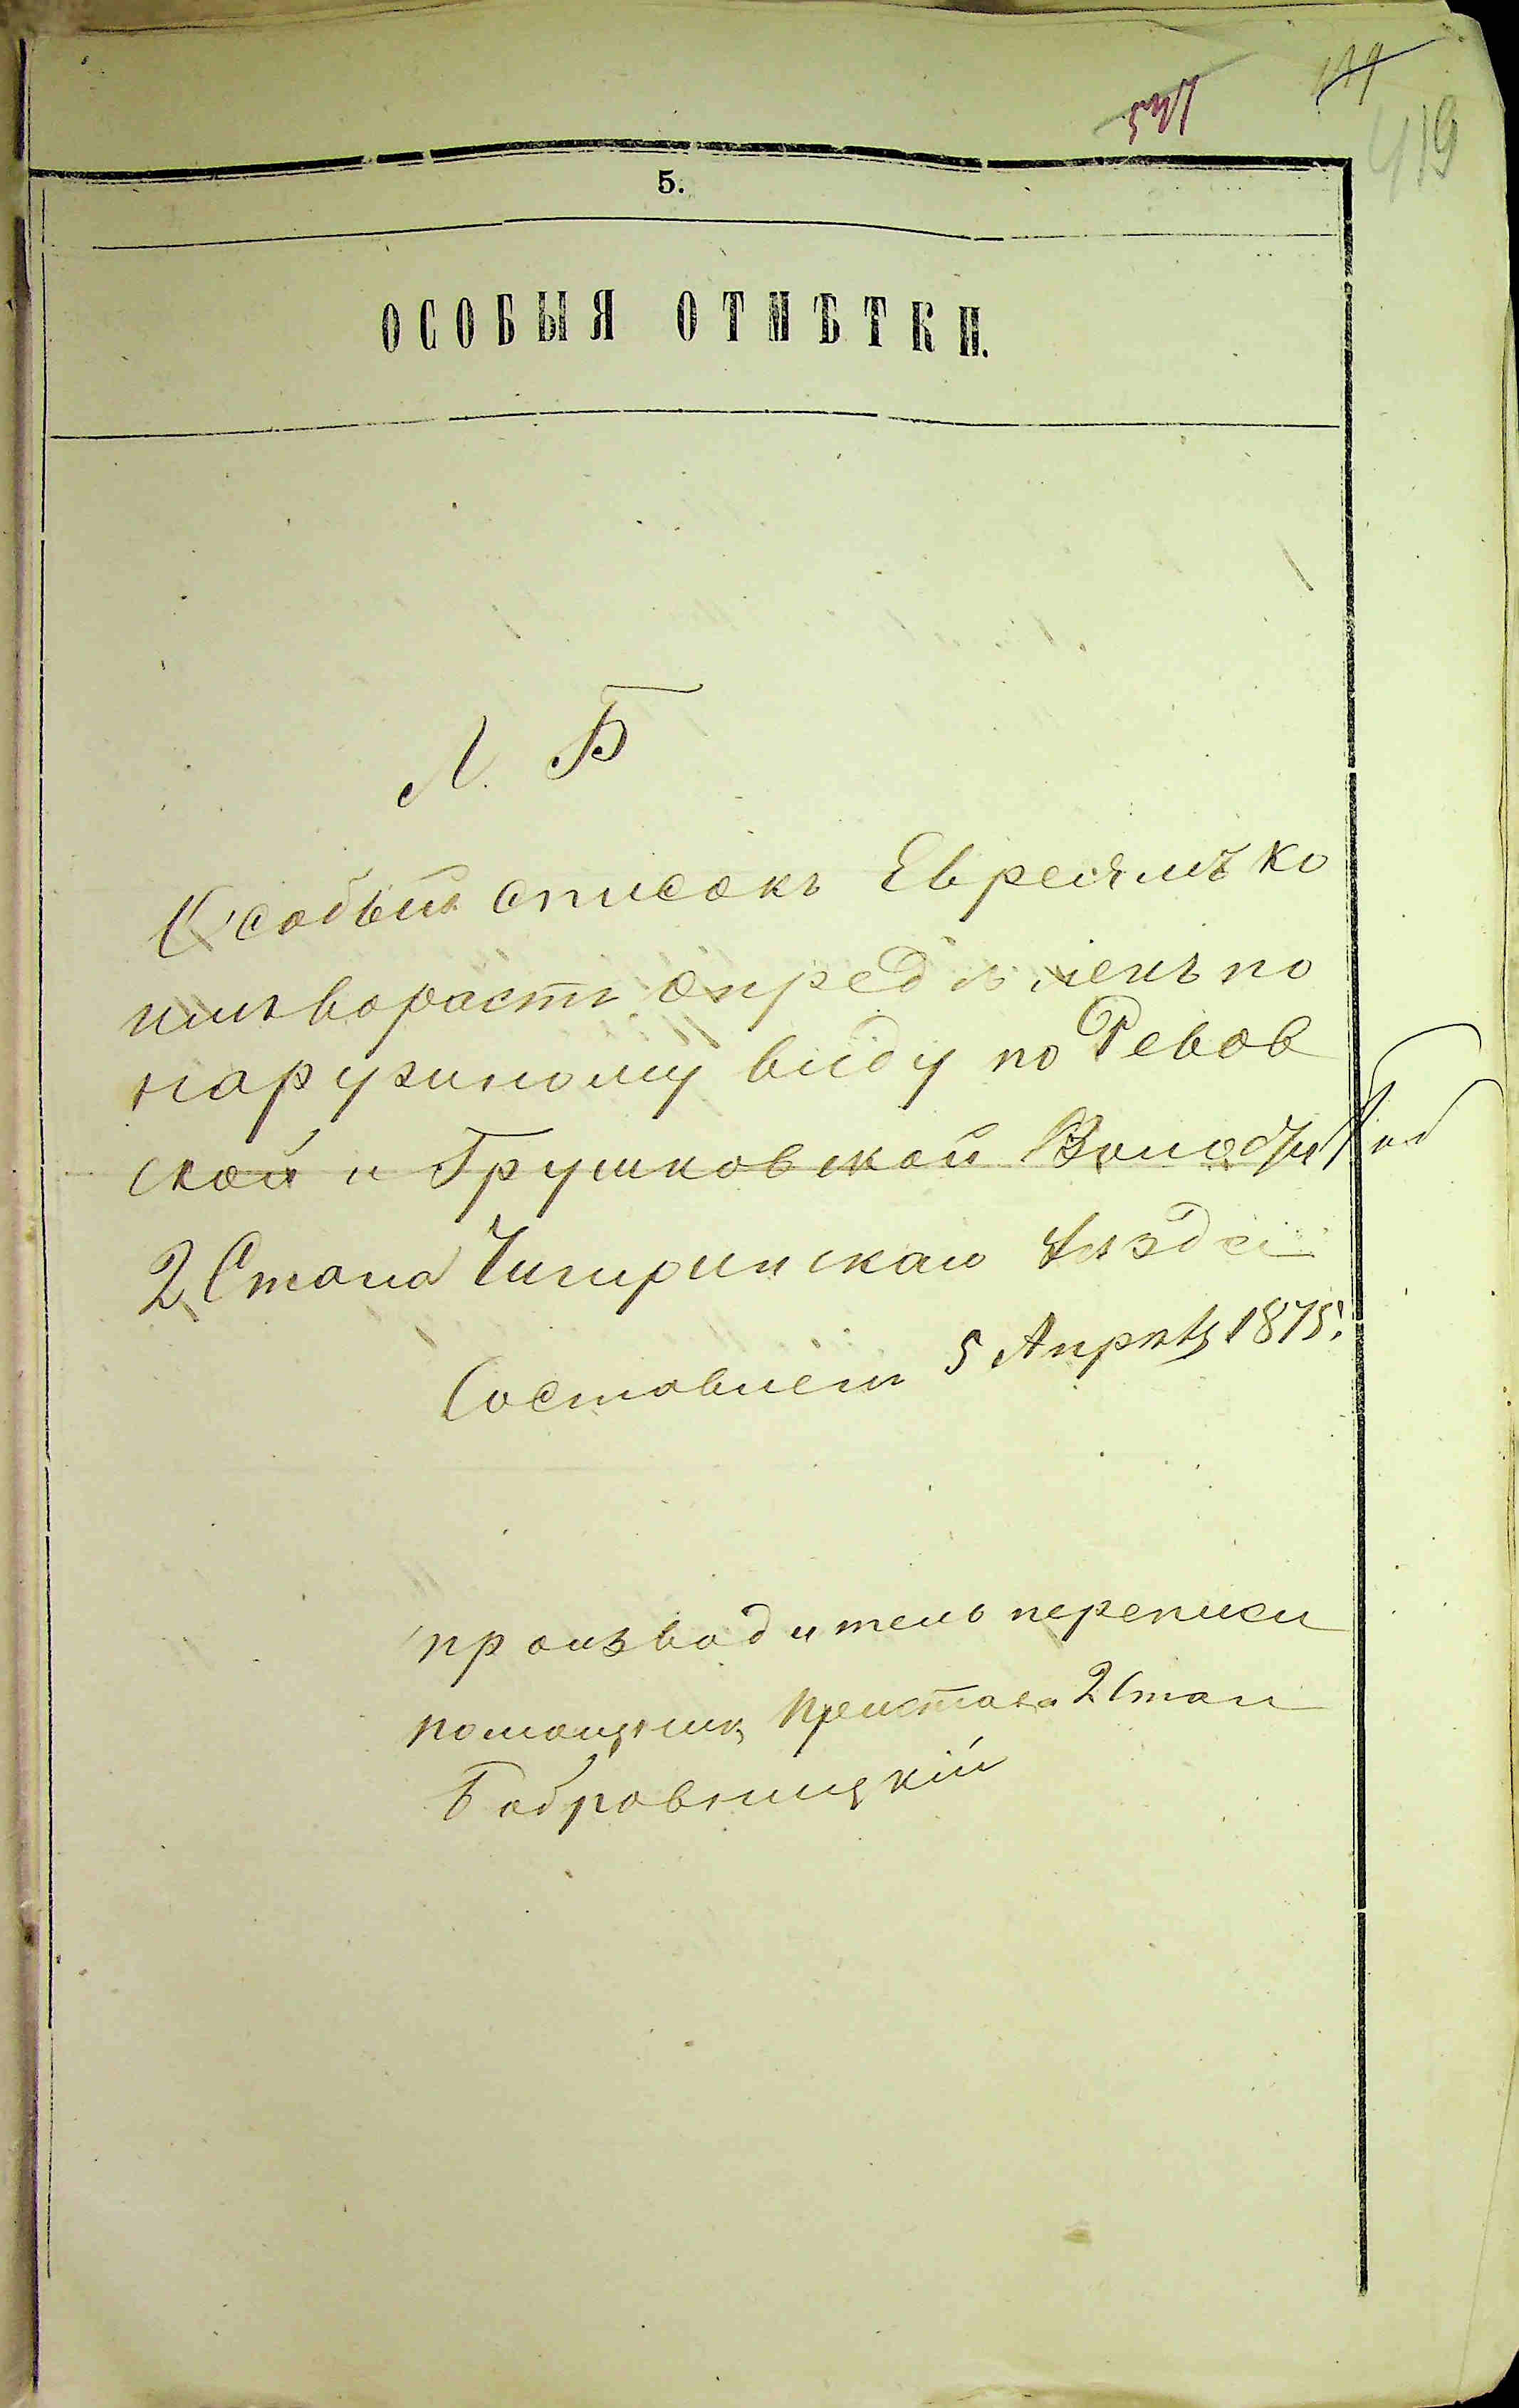 419
5.
ОСОБЫЯ ОТМѢТКИ.
Л. Б
Особый списокъ Евреямъ ко
имъворастъ опредѣленъ по
наружному виду по Ревов
ской и Грушковской Волости
2 Стана Чигиринскаго Уѣзда
Составленъ 5 Апрѣля 1875.
производитель переписи
помощникъ Пристава 2 Стан
Бобровницкій